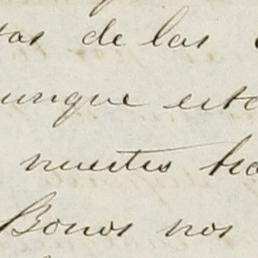 tas de las
unque esto
nuestro tra
Bonos nos